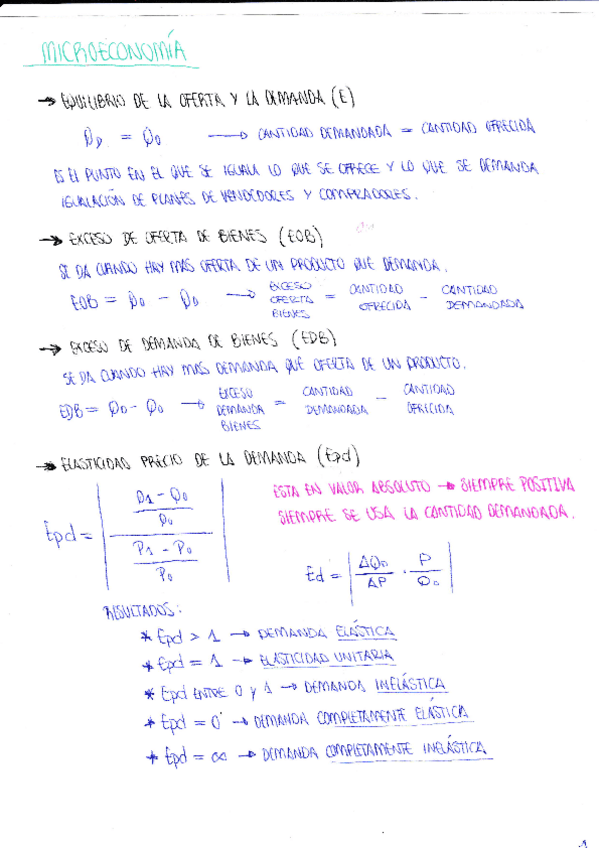 MICROECONOMÍA
→ EQUILIBRIO DE LA OFERTA Y LA DEMANDA (E)
QD = QO → CANTIDAD DEMANDADA = CANTIDAD OFRECIDA
ES EL PUNTO EN EL QUE SE IGUALA LO QUE SE OFRECE Y LO QUE SE DEMANDA
IGUALACIÓN DE PLANES DE VENDEDORES Y COMPRADORES.
→ EXCESO DE OFERTA DE BIENES (EOB)
SE DA CUANDO HAY MAS OFERTA DE UN PRODUCTO QUE DEMANDA.
EOB = QO - QD → EXCESO OFERTA BIENES = CANTIDAD OFRECIDA - CANTIDAD DEMANDADA
→ EXCESO DE DEMANDA DE BIENES (EDB)
SE DA CUANDO HAY MAS DEMANDA QUE OFERTA DE UN PRODUCTO.
EDB = QD - QO → EXCESO DEMANDA BIENES = CANTIDAD DEMANDADA - CANTIDAD OFRECIDA
→ ELASTICIDAD PRECIO DE LA DEMANDA (Epd)
ESTA EN VALOR ABSOLUTO → SIEMPRE POSITIVA
SIEMPRE SE USA LA CANTIDAD DEMANDADA.
Epd = | ((Q1 - Q0) / Q0) / ((P1 - P0) / P0) |
Ed = | ΔQD / ΔP · P / QD |
RESULTADOS:
* Epd > 1 → DEMANDA ELÁSTICA
* Epd = 1 → ELASTICIDAD UNITARIA
* Epd ENTRE 0 y 1 → DEMANDA INELÁSTICA
* Epd = 0 → DEMANDA COMPLETAMENTE ELÁSTICA
* Epd = ∞ → DEMANDA COMPLETAMENTE INELÁSTICA
1